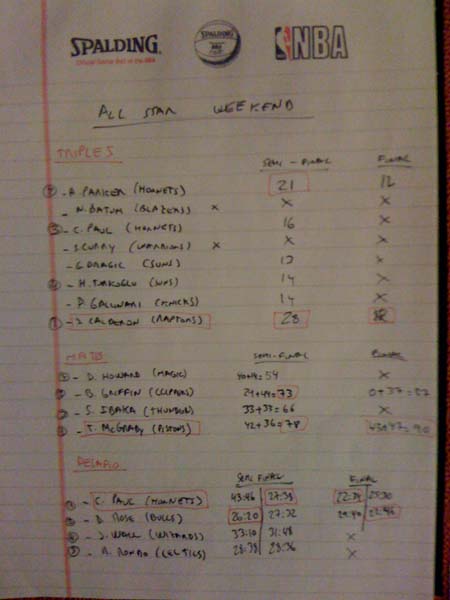 SPALDING
Official Game Ball of the NBA
SPALDING
NBA
ALL STAR WEEKEND
TRIPLES
SEMI-FINAL FINAL
PARKER (HORNETS) 21 12
- N. BATUM (BLAZERS) x X X
③ - C. PAUL (HORNETS) 16 X
- S. CURRY (WARRIORS) x X X
- G. DRAGIC (SUNS) X
- H. TURKOGLU (SUNS) 14 X
- P. GALLINARI (KNICKS) 14 X
① - J. CALDERON (RAPTORS) 28
MATES
SEMI-FINAL FINAL
- D. HOWARD (MAGIC) = 54 X
- B. GRIFFIN (CLIPPERS) = 73 0+37=
- S. IBAKA (THUNDER) 33+33=66 X
- T. MCGRADY (PISTONS) 42+36=78 43+47=90
SEMI FINAL FINAL
- C. PAUL (HORNETS) 43:46 27:38
- D. ROSE (BULLS) 26:20 27:32
- J. WALL (WIZARDS) 33:10 31:48 X
- R. RONDO (CELTICS) 28:38 28:36 X